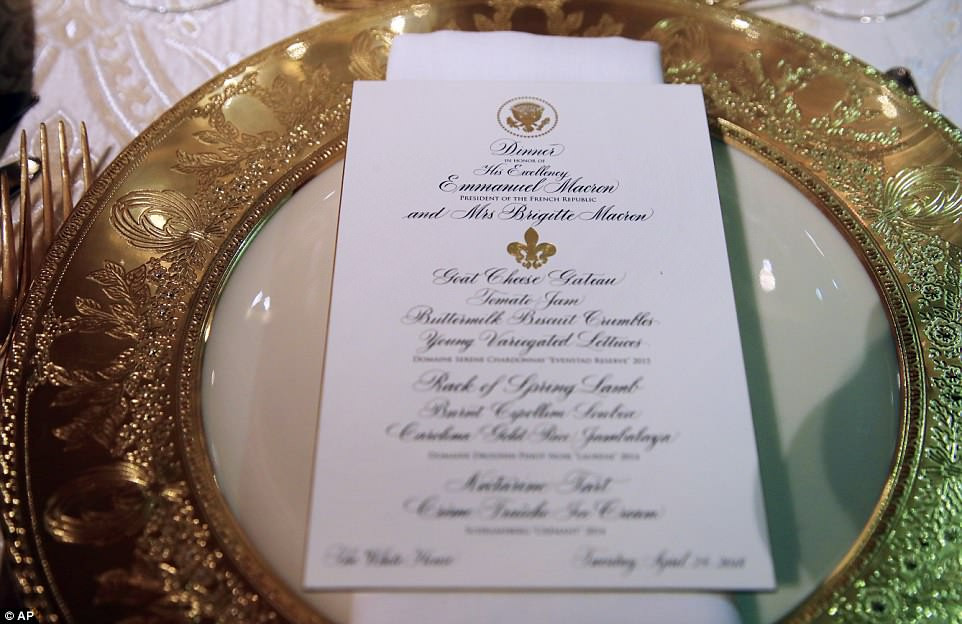 Dinner
IN HONOR OF
His Excellency
Emmanuel Macron
PRESIDENT OF THE FRENCH REPUBLIC
and Mrs Brigitte Macron
Goat Cheese Gateau
Tomato Jam
Buttermilk Biscuit Crumbles
Young Variegated Lettuces
DOMAINE SERENE CHARDONNAY "EVENSTAD RESERVE" 2015
Rack of Spring Lamb
Burnt Cipollini Soubise
Carolina Gold Rice Jambalaya
DOMAINE DROUHIN PINOT NOIR "LAURÈNE" 2014
Nectarine Tart
Crème Fraîche Ice Cream
SCHRAMSBERG "CRÉMANT" 2014
The White House
Tuesday, April 24, 2018
© AP